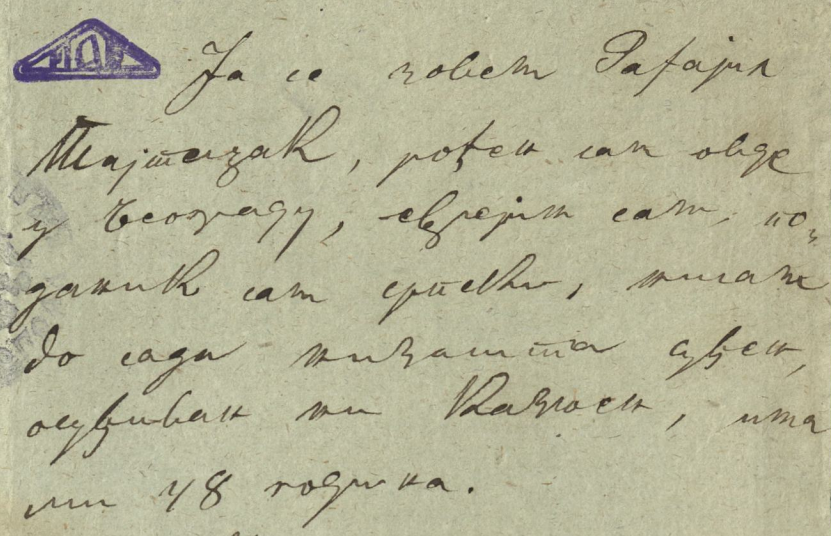 Ја се зовем Рафајил
Тајтацак, рођен сам овде
у Београду, еврејин сам, по-
даник сам српски, нисам
до сада ни за шта суђен,
осуђиван ни кажњен, има
ми 48 година.